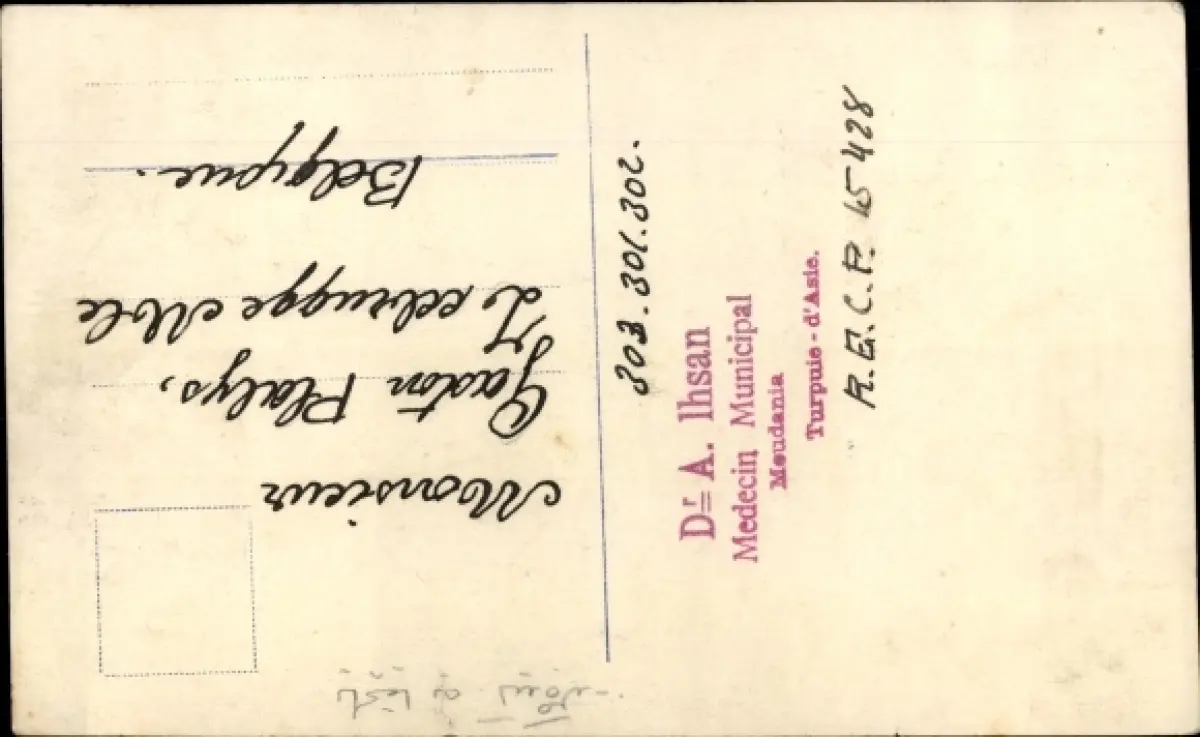 Monsieur
Gaston Plalys,
Zeebrugge Mole
Belgique.
303.301.302.
Dr A. Ihsan
Medecin Municipal
Moudania
Turpuie - d'Asie.
R.E.C.P. 45428